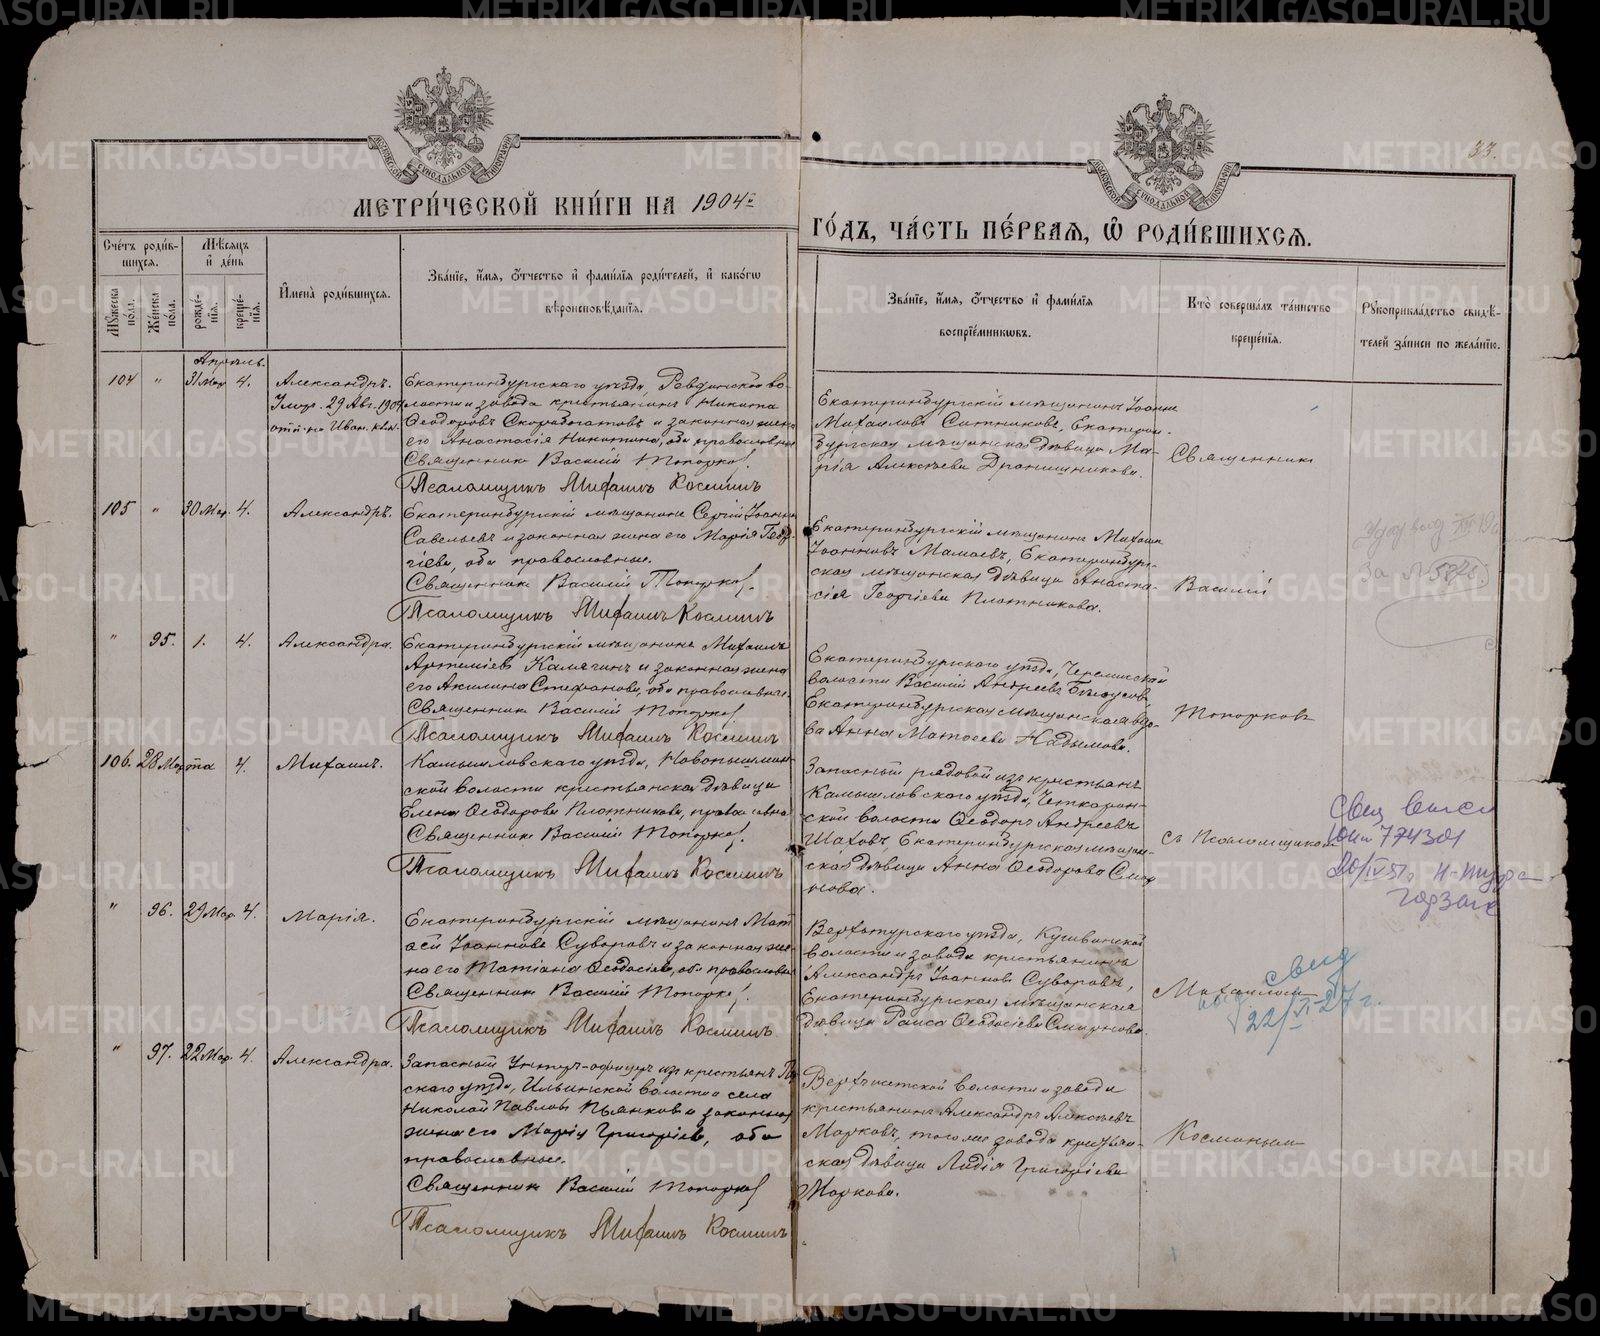 METRIKI.GASO-URAL.RU
33.
МОСКОВСКОЙ СѴНОДАЛЬНОЙ ТИПОГРАФІИ
МЕТРИ́ЧЕСКОЙ КНИ́ГИ НА 1904й
ГО́ДЪ, ЧА́СТЬ ПЕ́РВАЯ, Ѡ РОДИ́ВШИХСЯ.
Сче́тъ роди́вшихся.
Мѣ́сяцъ и́ де́нь
Мужеска пола.
Женска пола.
рожде́нія.
креще́нія.
И҆мена̀ роди́вшихся.
Зва́нїе, и҆́мя, ѻ҆́тчество и҆ фами́лїя роди́телей, и҆ како́гѡ
вѣроисповѣ́данїя.
Зва́нїе, и҆́мя, ѻ҆́тчество и҆ фами́лїя
воспрїе́мникѡвъ.
Кто̀ соверша́лъ та́инство
креще́нїя.
Рукоприкла́дство свидѣ́-
телей за́писи по жела́нїю.
Апрѣль.
104 " 31 Мар 4. Александръ.
Умер. 29 Авг. 1904
Екатеринбургскаго уѣзда, Ревдинской во-
лости и завода крестьянинъ Никита
Ѳеодоровъ Скоробогатовъ и законная жена
его Анастасія Никитина, оба православные
Священникъ Василій Топорков.
Псаломщикъ Михаилъ Косминъ
Екатеринбургскій мѣщанинъ Іоаннъ
Михаиловъ Ситниковъ, Екатерин-
бургская мѣщанская дѣвица Ма-
рія Алексѣева Дранишникова.
Священник
105 " 30 Мар. 4. Александръ.
Екатеринбургскій мѣщанинъ Сергій Іоаннов
Савельевъ и законная жена его Марія Геор-
гіева, оба православные.
Священникъ Василій Топорков.
Псаломщикъ Михаилъ Косминъ
Екатеринбургскій мѣщанинъ Михаилъ
Іоанновъ Мамаевъ, Екатеринбург-
ская мѣщанская дѣвица Анаста-
сія Георгіева Плотникова.
Василій
" 95. 1. 4. Александра.
Екатеринбургскій мѣщанинъ Михаилъ
Артеміевъ Калягинъ и законная жена
его Акилина Стефанова, оба православные.
Священникъ Василій Топорков
Псаломщикъ Михаилъ Косминъ
Екатеринбургскаго уѣзда, Черемисской
волости Василій Андреевъ Бѣлоусовъ
Екатеринбургская мѣщанская вдо-
ва Анна Матѳеева Надымова.
Топорковъ
106. 28 Марта 4. Михаилъ.
Камышловскаго уѣзда, Новопышмин-
ской волости крестьянская дѣвица
Елена Ѳеодорова Плотникова, православная
Священникъ Василій Топорков.
Псаломщикъ Михаилъ Косминъ
Запасный рядовой изъ крестьянъ
Камышловскаго уѣзда, Четкарин-
ской волости Ѳеодоръ Андреевъ
Шаховъ, Екатеринбургская мѣщан-
ская дѣвица Анна Ѳеодорова Смир-
нова.
съ Псаломщикомъ
" 96. 29 Мар. 4. Марія.
Екатеринбургскій мѣщанинъ Мат-
ѳей Іоанновъ Суворовъ и законная же-
на его Татіана Ѳеодосіева, оба православные
Священникъ Василій Топорков.
Псаломщикъ Михаилъ Косминъ
Верхотурскаго уѣзда, Кушвинской
волости и завода крестьянинъ
Александръ Іоанновъ Суворовъ,
Екатеринбургская мѣщанская
дѣвица Раиса Ѳеодосіева Смирнова.
Михаиломъ
свид
22/VI-27г.
" 97. 22 Мар. 4. Александра.
Запасный унтеръ-офицеръ изъ крестьянъ
скаго уѣзда, Ильинской волости и села
Николай Павловъ Пьянковъ и законная
жена его Марія Григоріева, оба
православные.
Священникъ Василій Топорков
Псаломщикъ Михаилъ Косминъ
Верхъисетской волости и завода
крестьянинъ Александръ Алексѣевъ
Марковъ, того же завода крестьян-
ская дѣвица Лидія Григоріева
Маркова.
Косминымъ